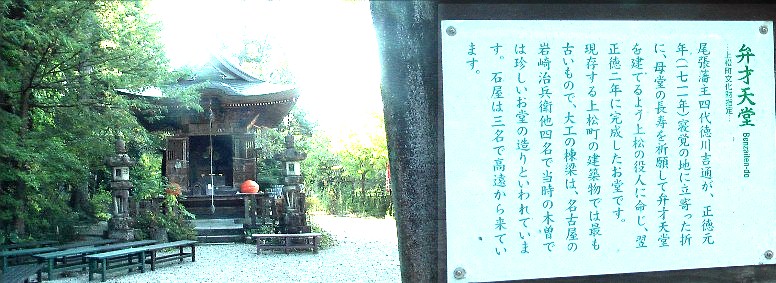 弁才天堂 Benzaiten-do
上松町文化財指定
尾張藩主四代徳川吉通が、正徳元
年(一七一一年)寝覚の地に立寄った折
に、母堂の長寿を祈願して弁才天堂
を建てるよう上松の役人に命じ、翌
正徳二年に完成したお堂です。
現存する上松町の建築物では最も
古いもので、大工の棟梁は、名古屋の
岩崎治兵衛他四名で当時の木曽で
は珍しいお堂の造りといわれていま
す。石屋は三名で高遠から来てい
ます。